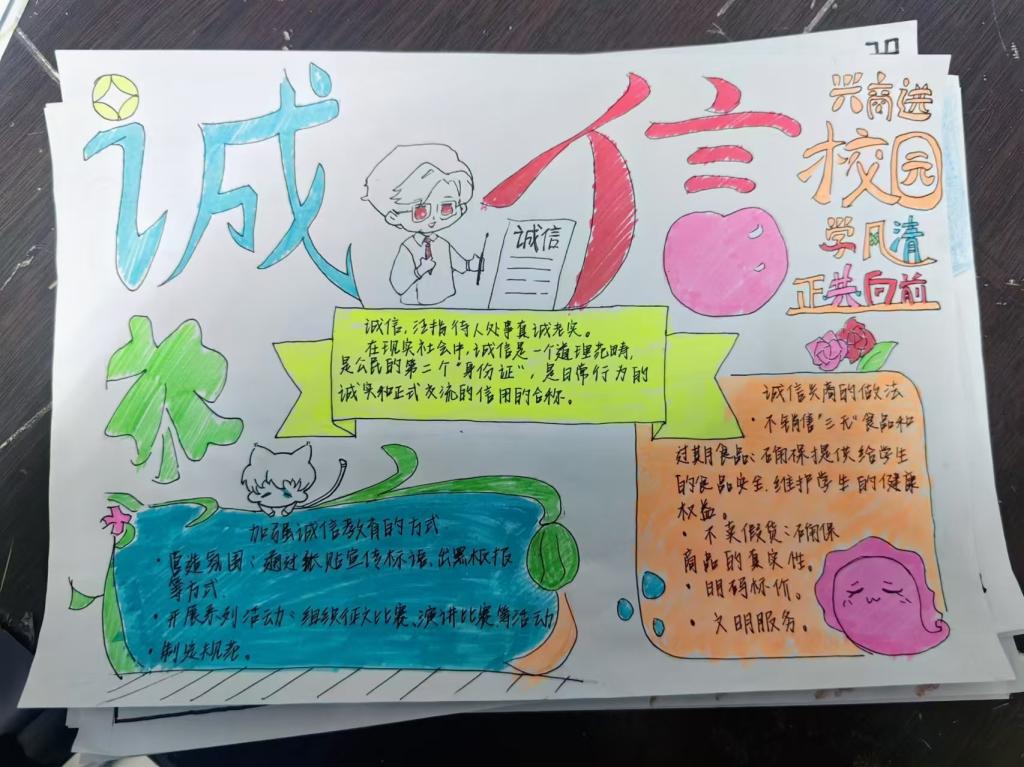 诚信
兴商进
校园
学风清
正共向前
诚信
诚信,泛指待人处事真诚老实。
在现实社会中,诚信是一个道理范畴,
是公民的第二个"身份证",是日常行为的
诚实和正式交流的信用的合称。
诚信兴商的做法
·不销售"三无"食品和
过期食品:确保提供给学生
的食品安全,维护学生的健康
权益。
·不卖假货:确保
商品的真实性。
·明码标价。
·文明服务。
加强诚信教育的方式
·营造氛围:通过纸贴宣传标语,出黑板报
等方式.
·开展系列活动:组织征文比赛、演讲比赛等活动
·制定规范。